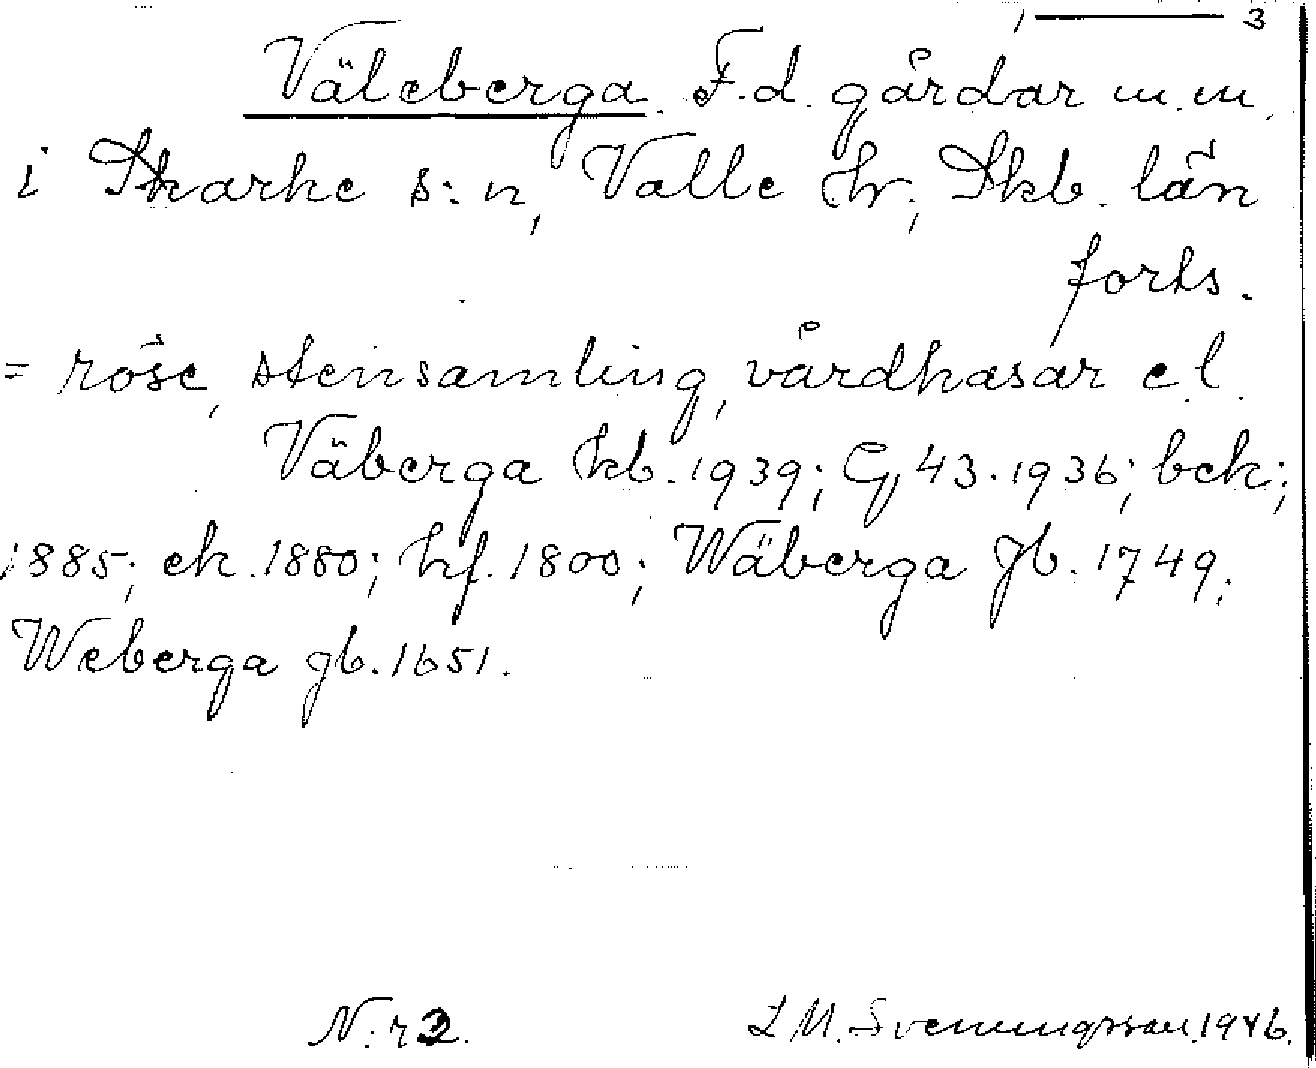 3
Väleberga. F.d. gårdar m.m.
i Skarke s:n, Valle hr, Skb. län
forts.
= röse, stensamling, vårdkasar e.l.
Väberga kb. 1939; G, 43. 1936; bek;
1885; ek. 1880; hf. 1800; Wäberga Jb. 1749;
Weberga jb. 1651.
N:r 2. L M. Svenungsson. 1946.